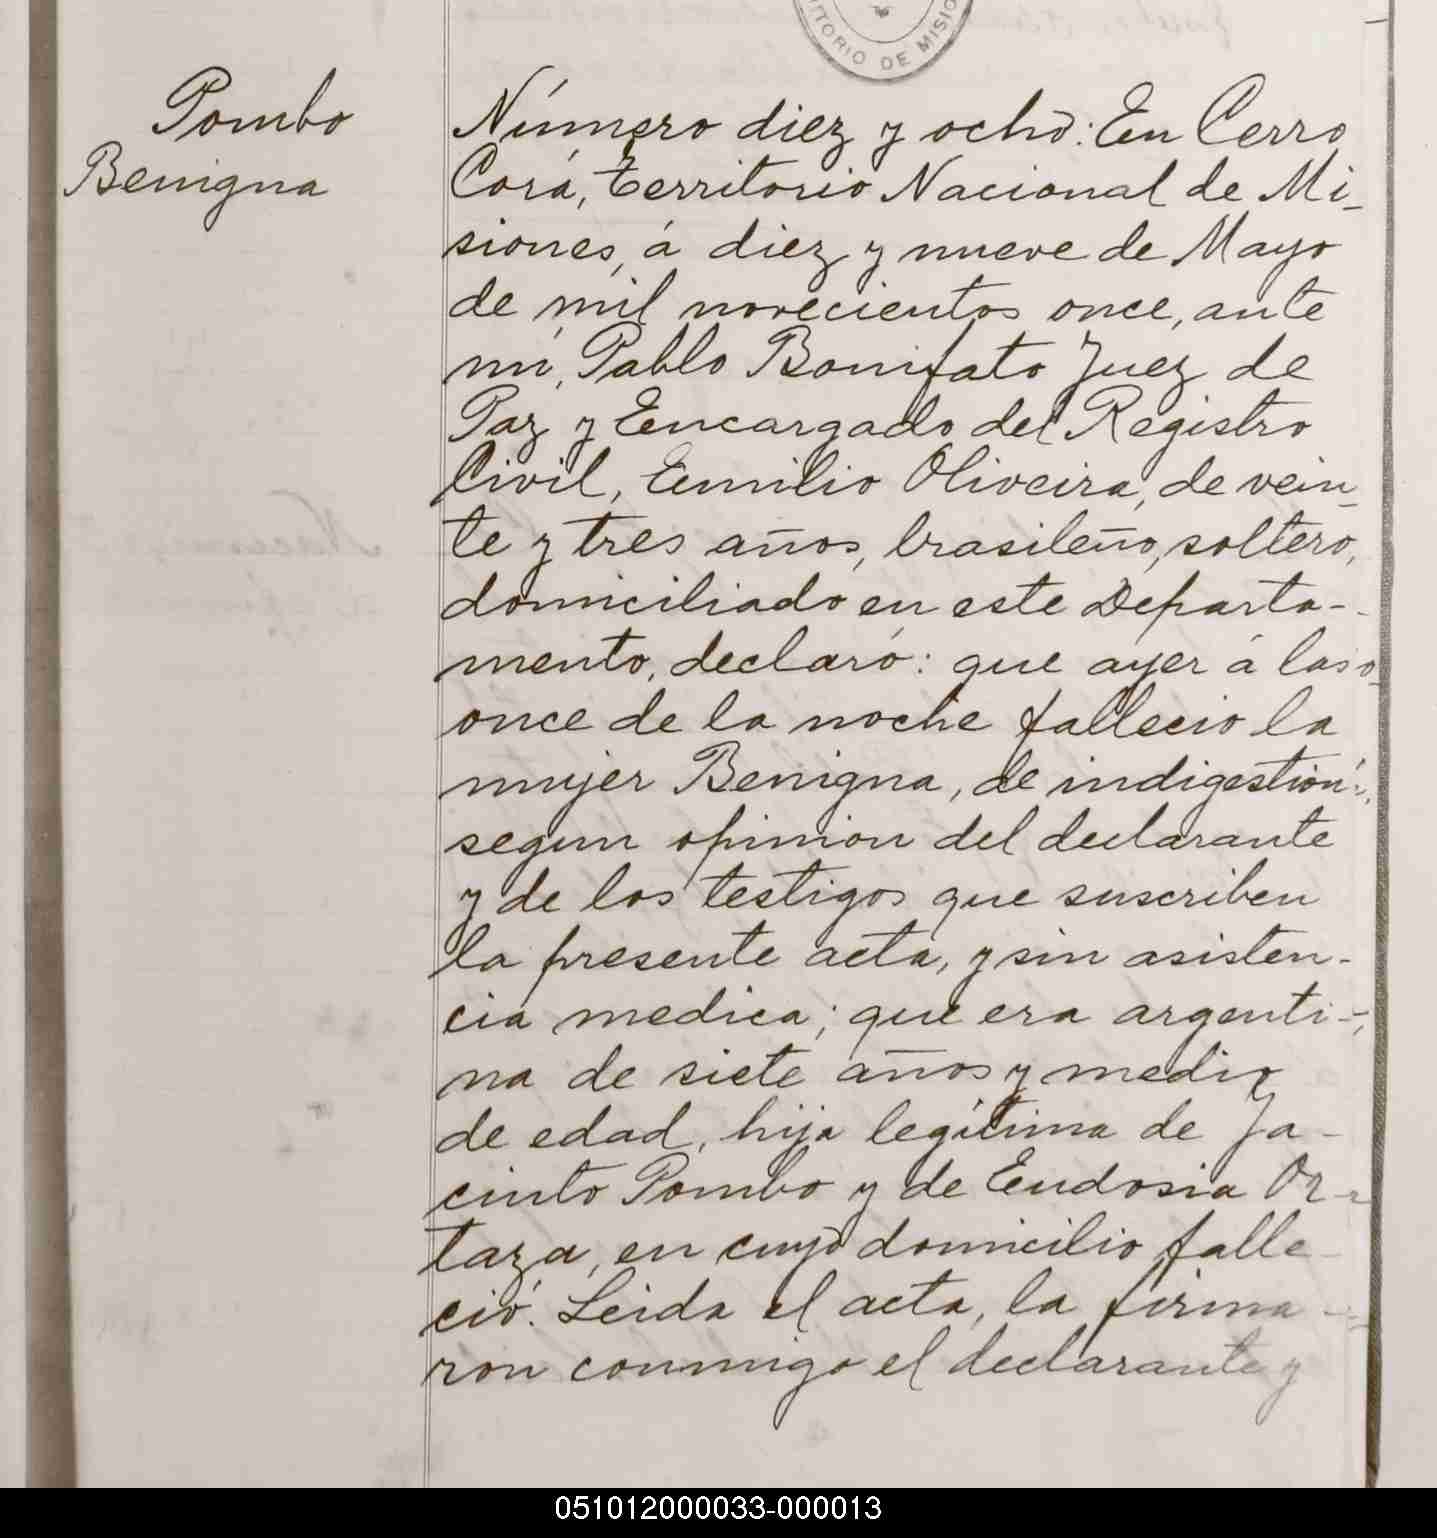 ITORIO DE MISIO
Pombo
Benigna
Número diez y ocho: En Cerro
Corá, territorio Nacional de Mi-
siones, á diez y nueve de Mayo
de mil novecientos once, ante
mi, Pablo Bonifato Juez de
Paz y Encargado del Registro
Civil, Emilio Oliveira, de vein
te y tres años, brasileño, soltero,
domiciliado en este Departa-
mento, declaró: que ayer á las
once de la noche fallecio la
mujer Benigna, de indigestión
segun opinion del declarante
y de los testigos que suscriben
la presente acta, y sin asisten-
cia medica; que era argenti-
na de siete años y medio
de edad, hija legítima de Ja-
cinto Pombo y de Eudosia Or-
taza, en cuyo domicilio falle-
ció. Leida el acta, la firma-
ron conmigo el declarante y
051012000033-000013